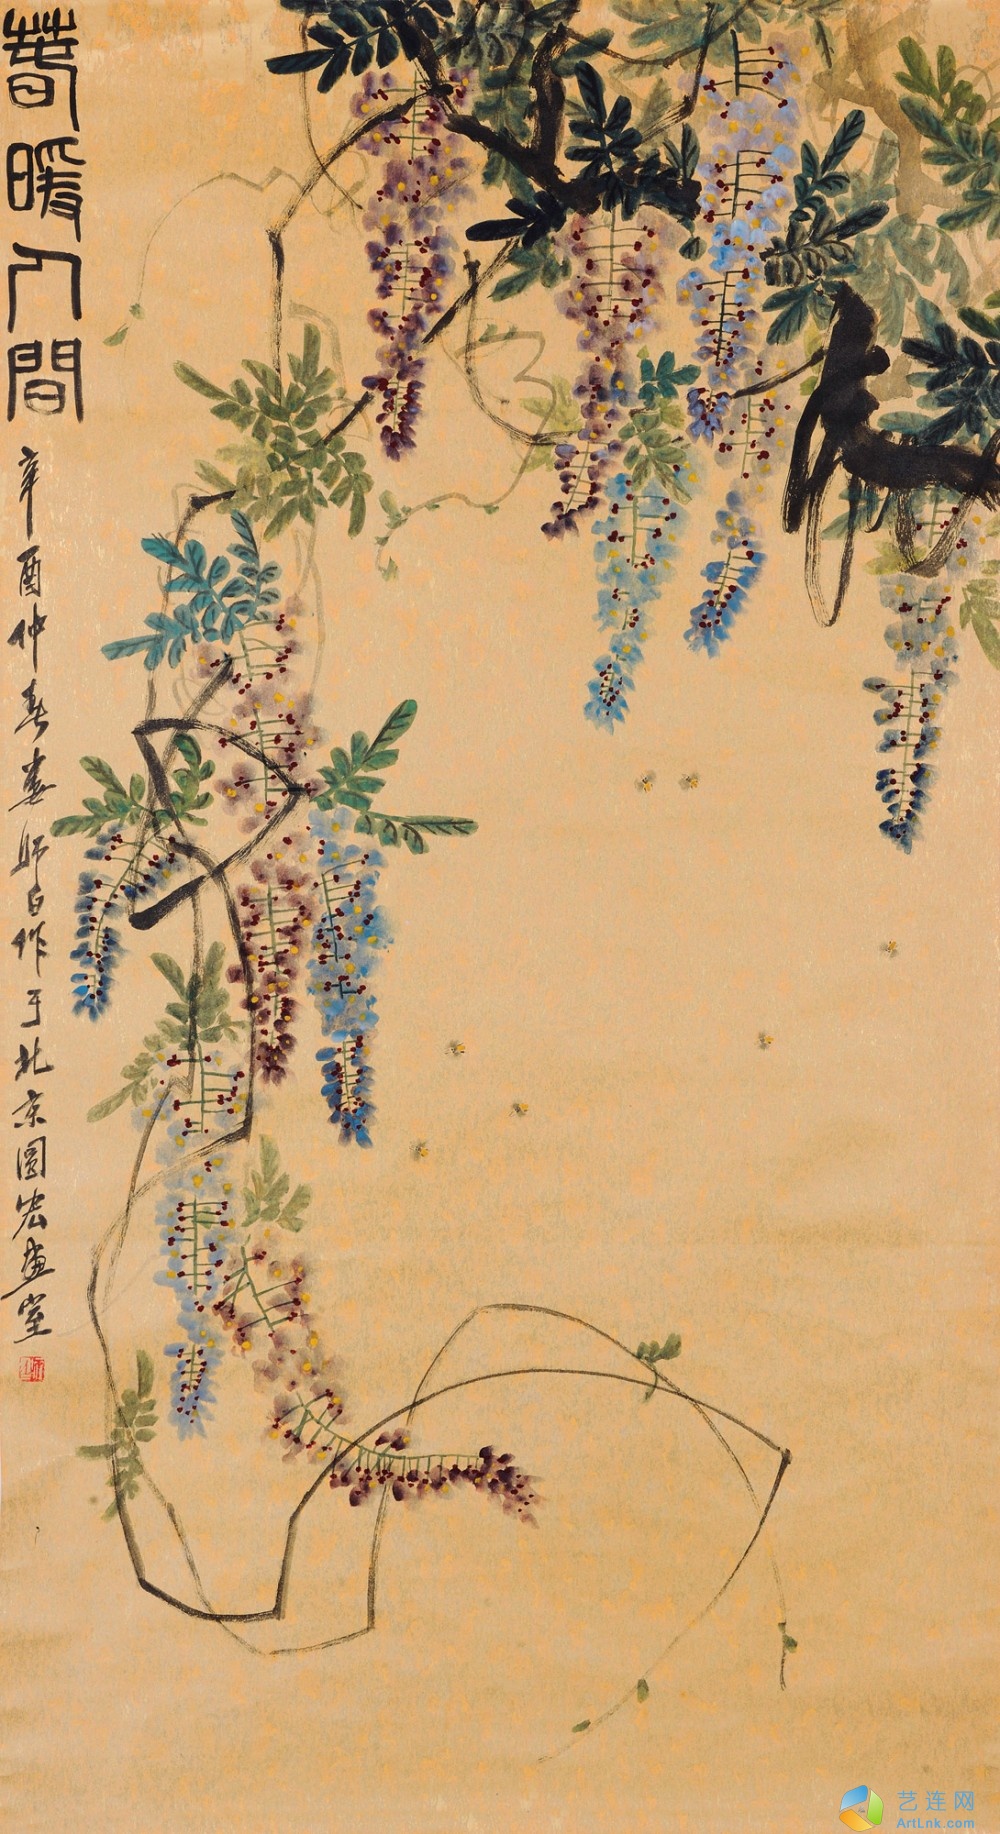 春暖人間
辛酉仲春婁師白作于北京圓宏畫室
艺连网
ArtLnk.com